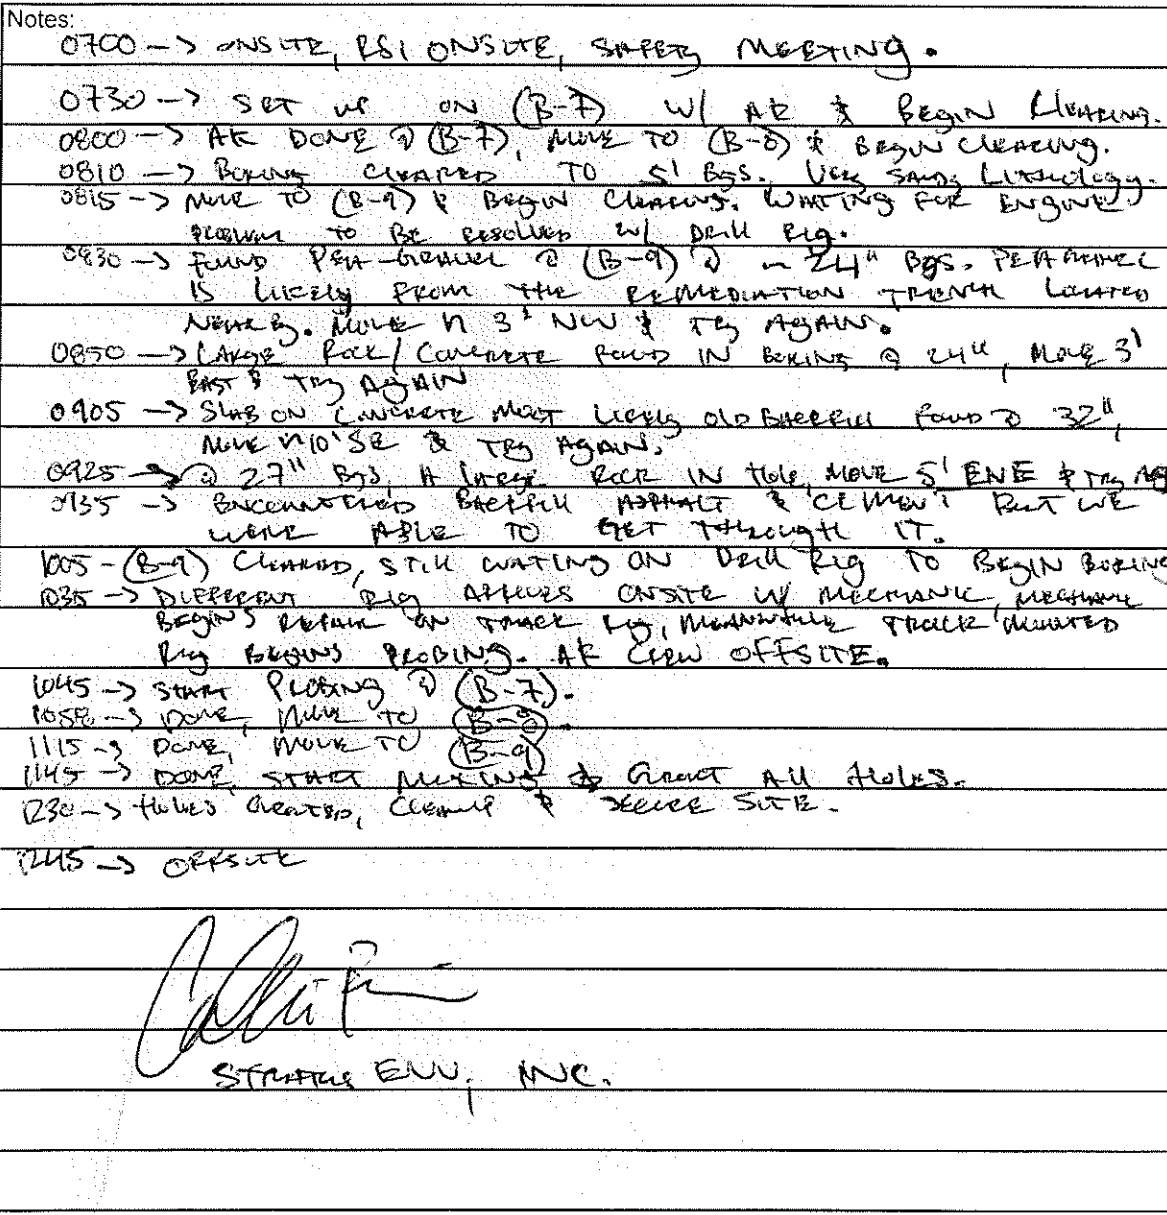 Notes:
0700 -> ONSITE, RSI ONSITE, SAFETY MEETING.
0730 -> SET UP ON (B-7) W/ AK & BEGIN CLEARING.
0800 -> AK DONE @ (B-7), MOVE TO (B-8) & BEGIN CLEARING.
0810 -> BORING CLEARED TO 5' BGS. VERY SANDY LITHOLOGY.
0815 -> MOVE TO (B-9) & BEGIN CLEARING. WAITING FOR ENGINE
PROBLEM TO BE RESOLVED W/ DRILL RIG.
0830 -> FOUND PEA-GRAVEL @ (B-9) @ ~ 24" BGS. PEA GRAVEL
IS LIKELY FROM THE REMEDIATION TRENCH LOCATED
NEARBY. MOVE ~ 3' NW & TRY AGAIN.
0850 -> LARGE ROCK/CONCRETE FOUND IN BORING @ 24", MOVE 3'
EAST & TRY AGAIN
0905 -> SLAB ON CONCRETE MOST LIKELY OLD BACKFILL FOUND @ 32",
MOVE ~10' SE & TRY AGAIN.
0925 -> @ 27" BGS, A LARGE ROCK IN HOLE, MOVE 5' ENE & TRY AG
0935 -> ENCOUNTERED BACKFILL ASPHALT & CEMENT BUT WE
WERE ABLE TO GET THROUGH IT.
1005 - (B-9) CLEARED, STILL WAITING ON DRILL RIG TO BEGIN BORING
1035 -> DIFFERENT RIG ARRIVES ONSITE W/ MECHANIC, MECHANIC
BEGINS REPAIR ON TRACK RIG, MEANWHILE TRUCK MOUNTED
RIG BEGINS PROBING. AK CREW OFFSITE.
1045 -> START PROBING @ (B-7).
1058 -> DONE, MOVE TO (B-8).
1115 -> DONE, MOVE TO (B-9)
1145 -> DONE, START MIXING & GROUT ALL HOLES.
1230 -> HOLES GROUTED, CLEANUP & SECURE SITE.
1245 -> OFFSITE
STRATUS ENV, INC.